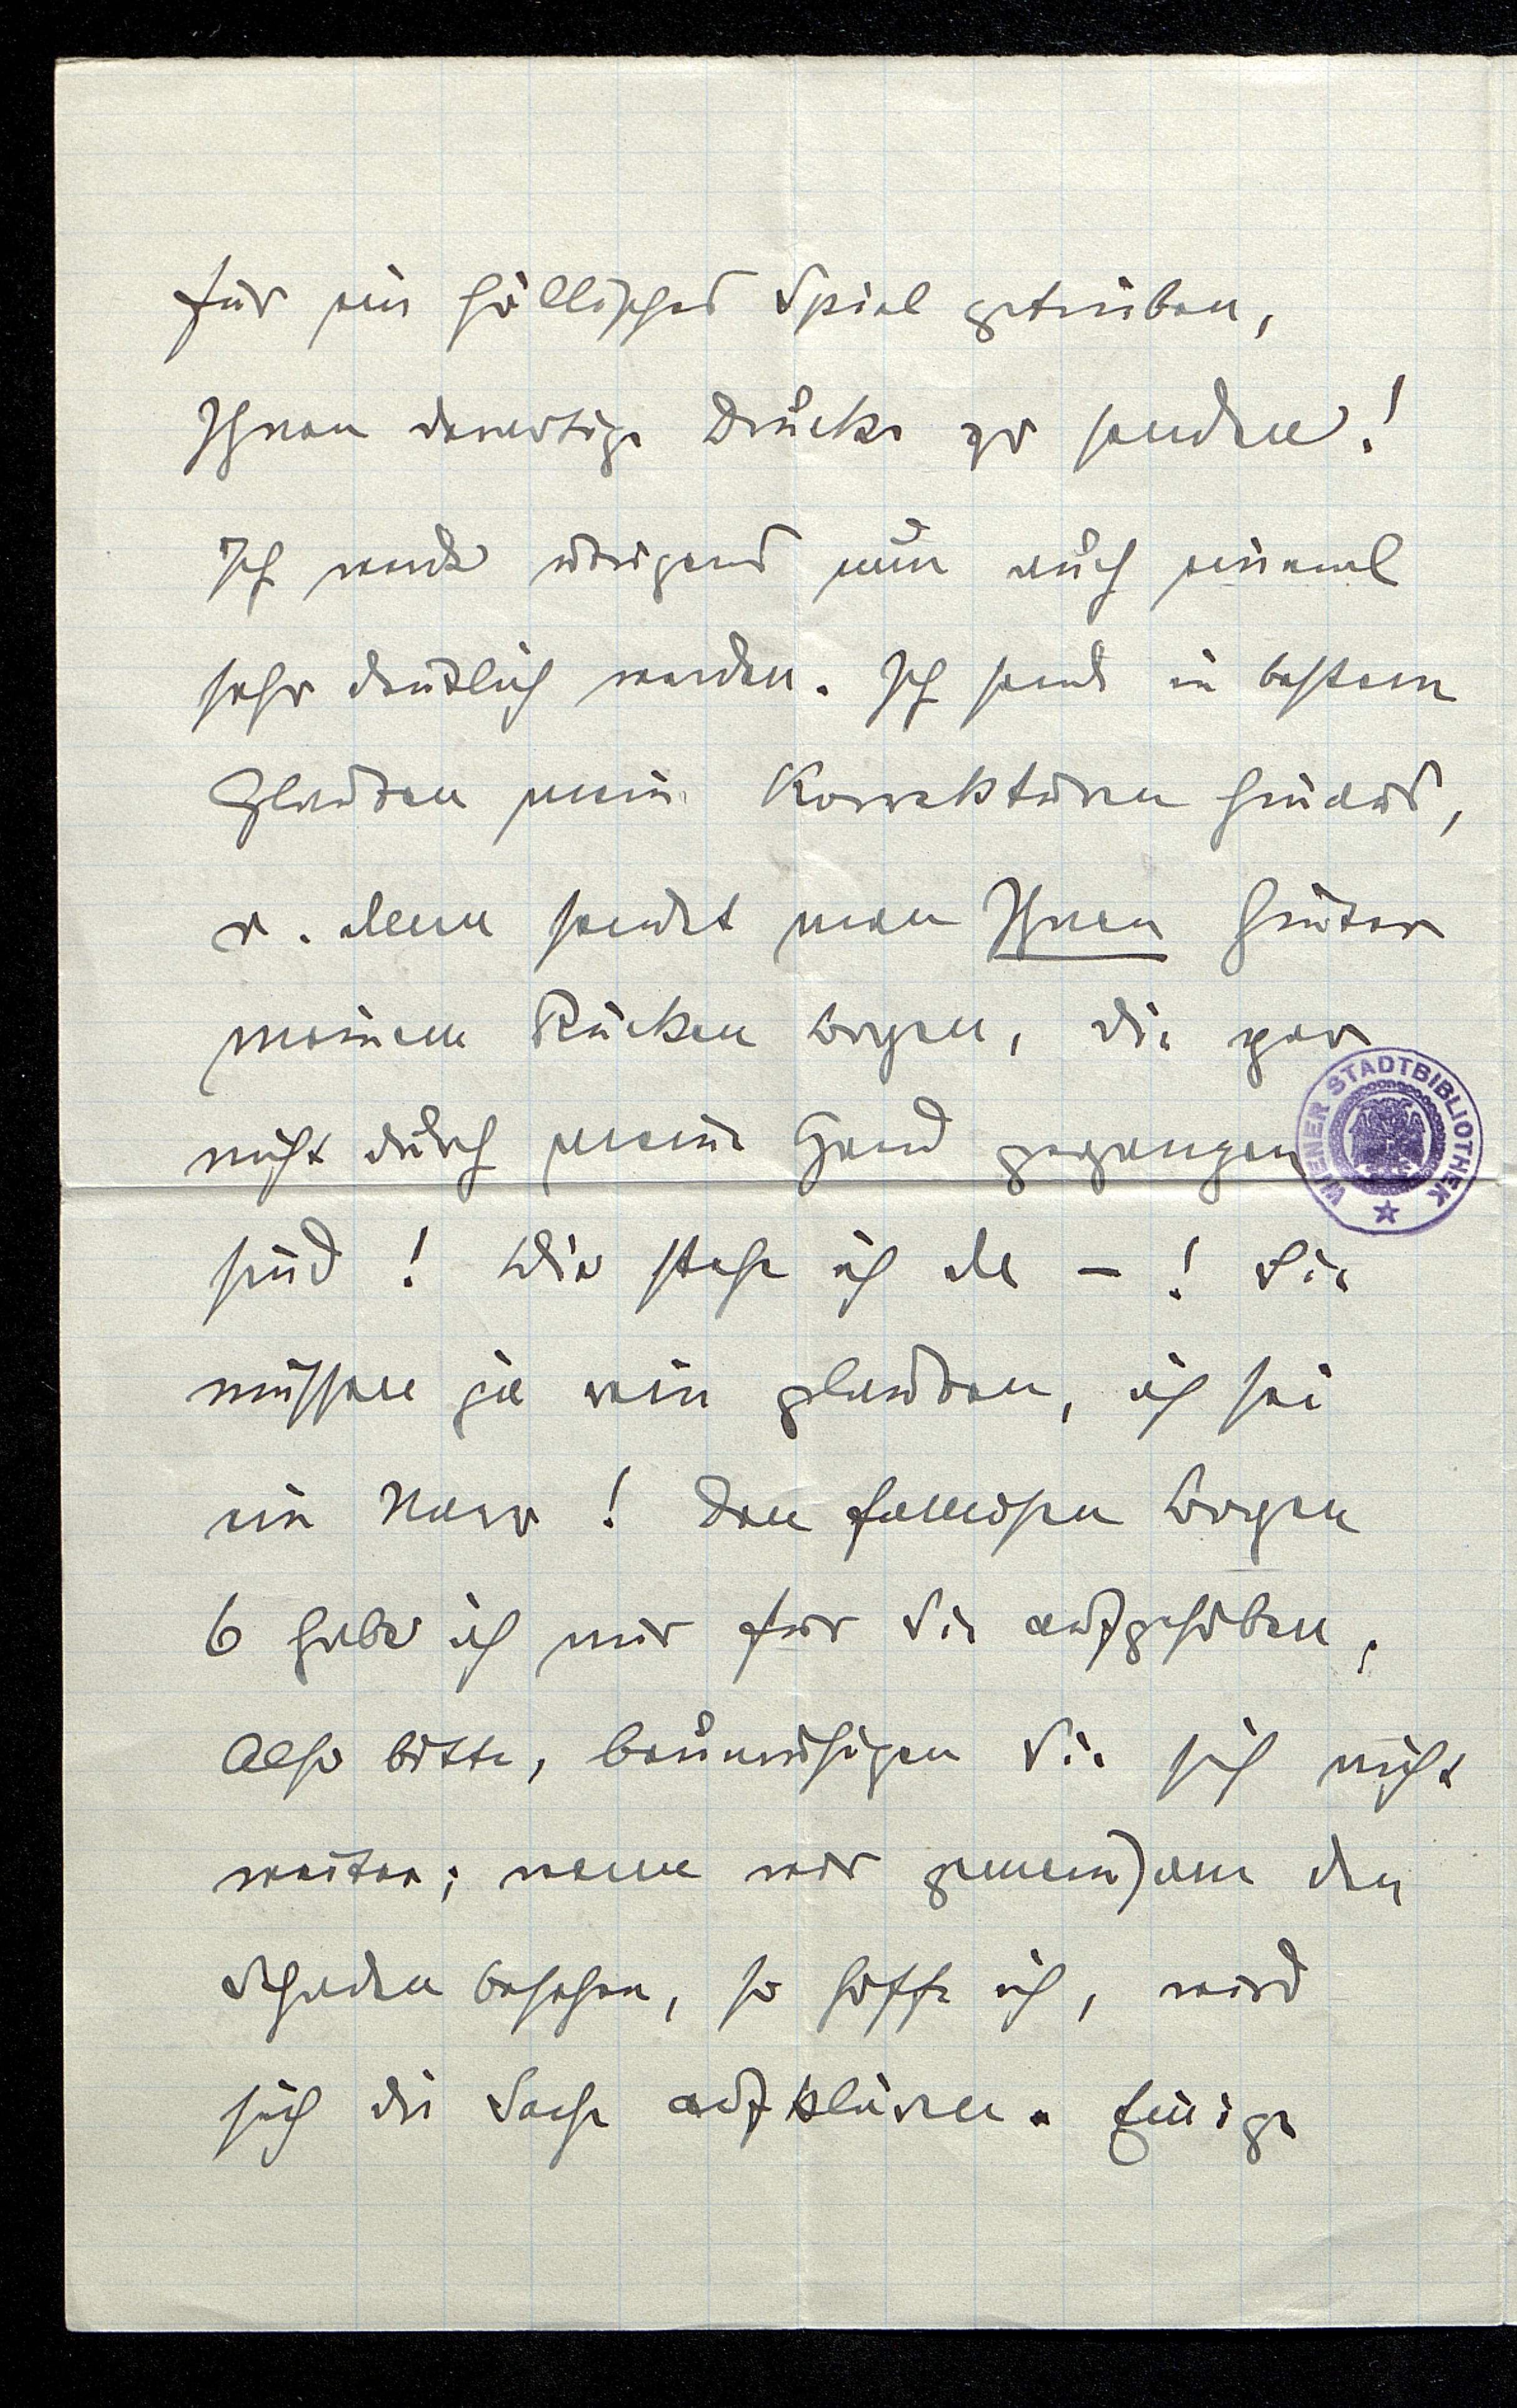 für ein höllisches Spiel getrieben,
Ihnen derartige Drucke zu senden!
Ich werde übrigens nun auch einmal
sehr deutlich werden. Ich sende in bestem
Glauben meine Korrekturen hinaus,
u. dann sendet man Ihnen hinter
meinem Rücken Bogen, die gar
nicht durch meine Hand gegangen
sind! Wie stehe ich da –! Sie
müssen ja rein glauben, ich sei
ein Narr! Den famosen Bogen
6 habe ich mir für Sie aufgehoben.
Also bitte, beunruhigen Sie sich nicht
weiter; wenn wir gemeinsam den
Schaden besehen, so hoffe ich, wird
sich die Sache aufklären. Einige
WIENER STADTBIBLIOTHEK